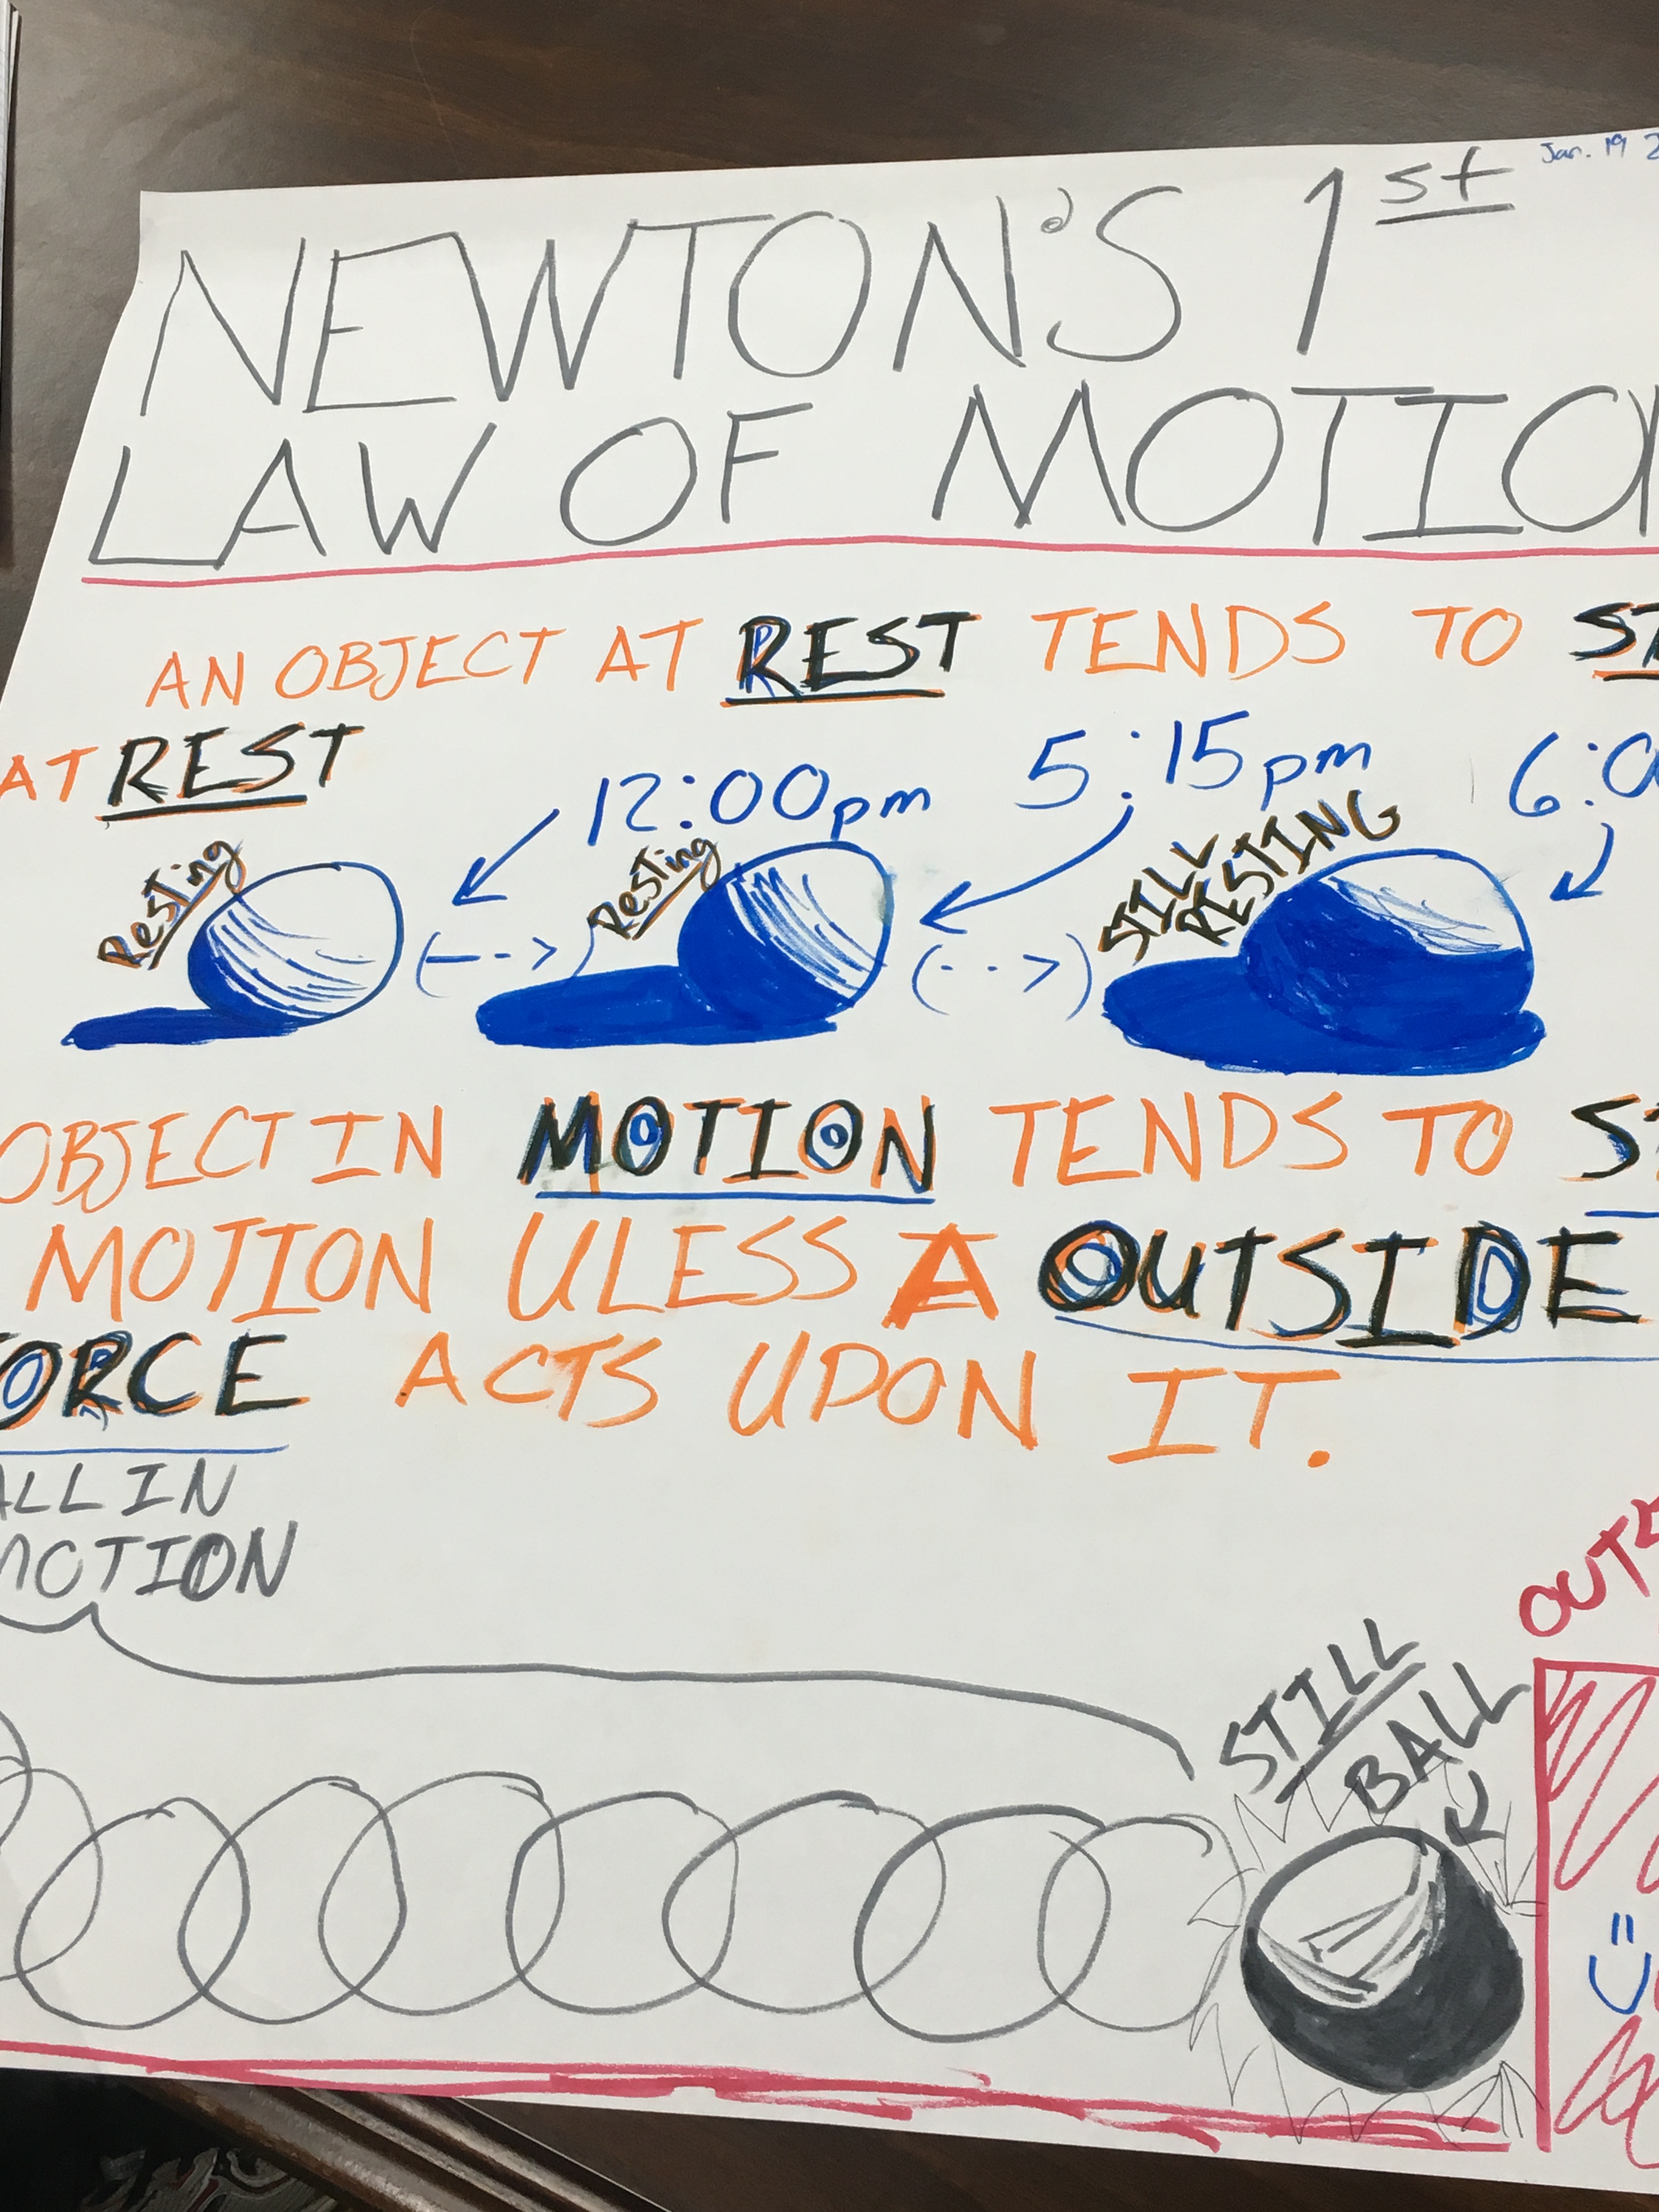 Jan. 19
NEWTON'S 1st
LAW OF MOTION
AN OBJECT AT REST TENDS TO
AT REST
12:00pm
5:15pm
Resting
Resting
STILL
RESTING
OBJECT IN MOTION TENDS TO
MOTION ULESS A OUTSIDE
FORCE ACTS UPON IT.
ALL IN
MOTION
STILL
BALL